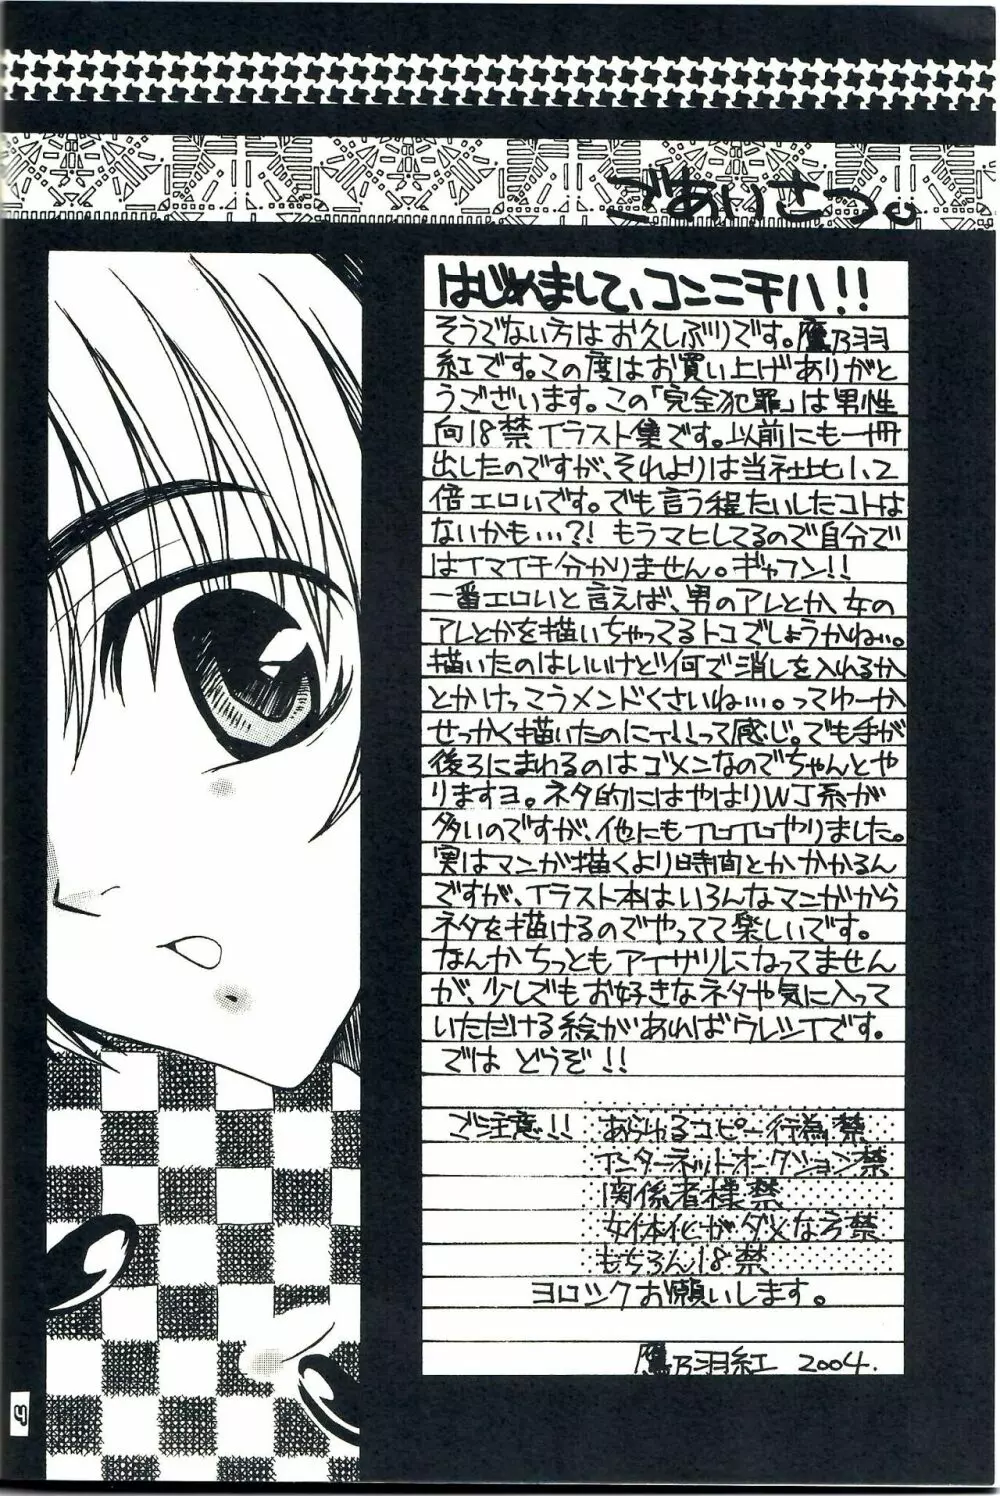 ごあいさつ。
はじめまして、コンニチハ!!
そうでない方はお久しぶりです。鷹乃羽
紅です。この度はお買い上げありがと
うございます。この「完全犯罪」は男性
向18禁イラスト集です。以前にも一冊
出したのですが、それよりは当社比1、2
倍エロいです。でも言う程たいしたコトは
ないかも…?! もうマヒしてるので自分で
はイマイチ分かりません。ギャフン!!
一番エロいと言えば、男のアレとか、女の
アレとかを描いちゃってるトコでしょうかね…。
描いたのはいいけど何で消しを入れるか
とかけっこうメンドくさいね…。ってゆーか
せっかく描いたのにィ!!って感じ。でも手が
後ろにまわるのはゴメンなのでちゃんとや
りますヨ。ネタ的にはやはりWJ系が
多いのですが、他にもイロイロやりました。
実はマンガ描くより時間とかかかるん
ですが、イラスト本はいろんなマンガから
ネタを描けるのでやってて楽しいです。
なんかちっともアイサツになってません
が、少しでもお好きなネタや気に入って
いただける絵があればウレシイです。
では どうぞ!!
ご注意!! あらゆるコピー行為禁
インターネットオークション禁
関係者様禁
女体化がダメな方禁
もちろん18禁
ヨロシクお願いします。
鷹乃羽紅 2004.